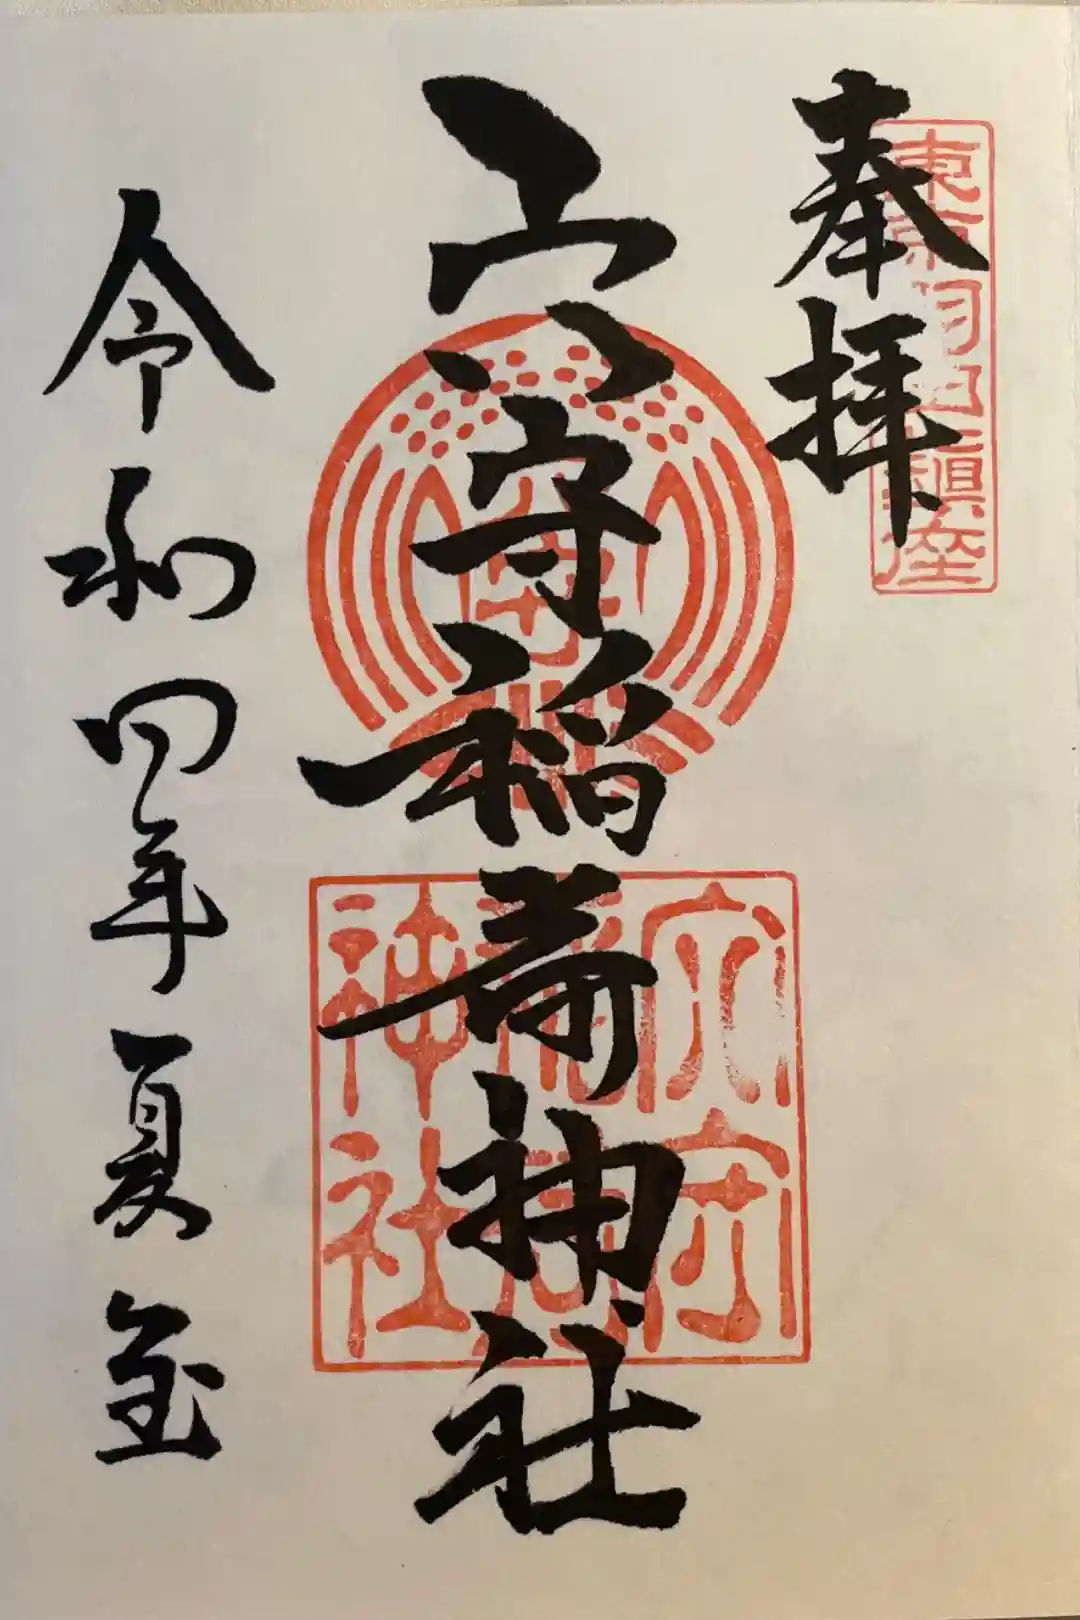 奉拝
東京羽田鎮座
穴守稲荷神社
穴守
稲荷
神社
令和四年夏至